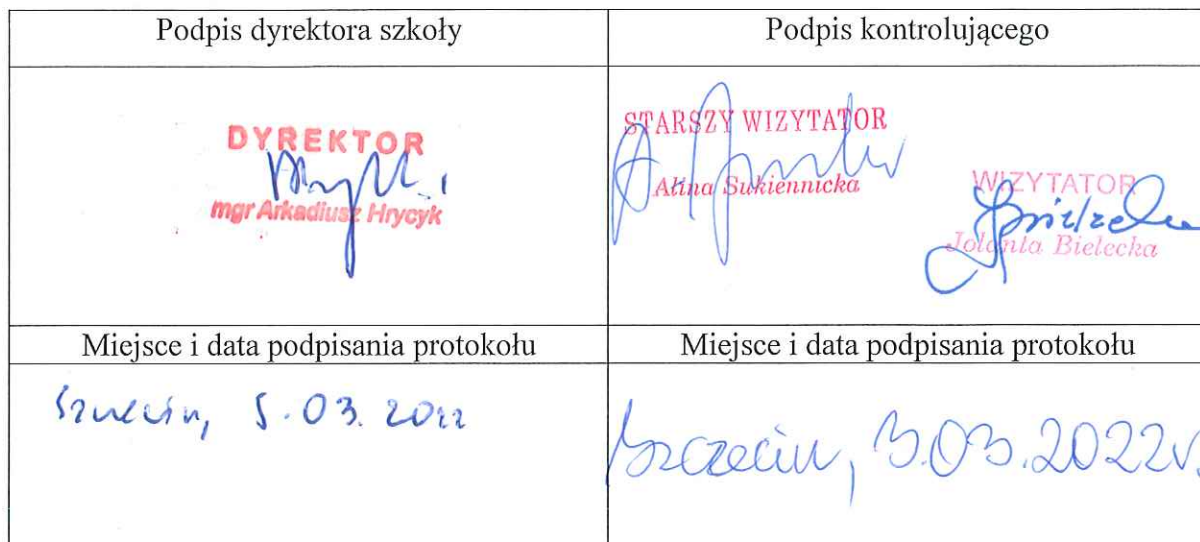 Podpis dyrektora szkoły
Podpis kontrolującego
DYREKTOR
mgr Arkadiusz Hrycyk
STARSZY WIZYTATOR
Alina Sukiennicka
WIZYTATOR
Jolanta Bielecka
Miejsce i data podpisania protokołu
Miejsce i data podpisania protokołu
Szczecin, 5.03.2022
Szczecin, 3.03.2022r.